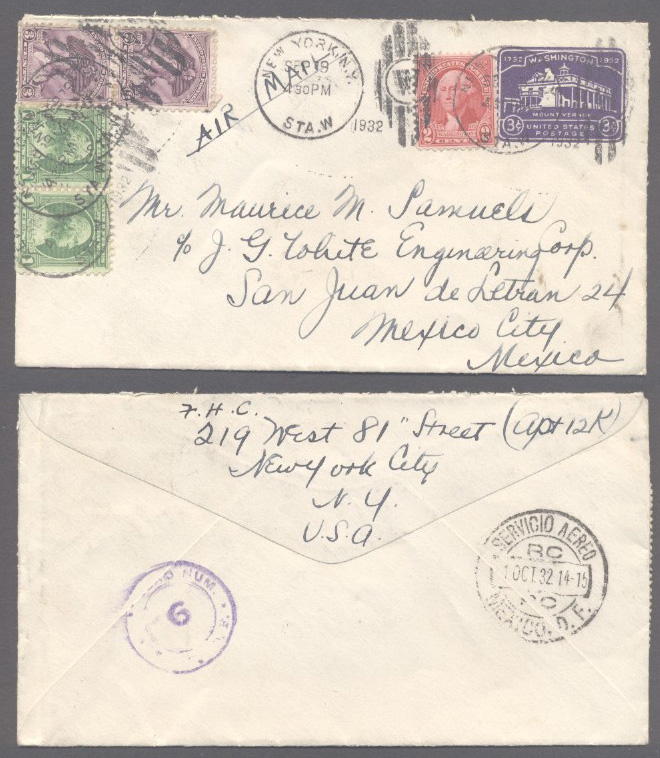 NEW YORK, N.Y.
SEP 19
4 30 PM
STA. W
1932
AIR MAIL
1732 WASHINGTON 1932
MOUNT VERNON
3¢ UNITED STATES 3¢
POSTAGE
2 CENTS 2
3¢
3¢
1
1
STA. W
1932
Mr. Maurice M. Samuels
c/o J. G. White Engineering Corp.
San Juan de Letran 24
Mexico City
Mexico
F. H. C.
219 West 81" Street (Apt 12K)
New York City
N. Y.
U.S.A.
SERVICIO AEREO
RC
1 OCT. 32 14-15
MEXICO, D. F.
NUM.
6